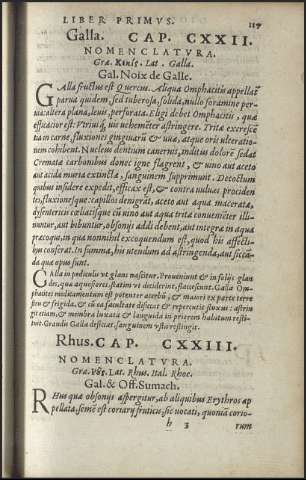 LIBER PRIMVS. 119
Galla. CAP. CXXII.
NOMENCLATVRA.
Græ. Κηκίς. Lat. Galla.
Gal. Noix de Galle.
GAlla fructus est Quercus. Aliqua Omphacitis appellat̃
parua quidem, sed tuberosa, solida, nullo foramine per-
uia: altera plana, leuis, perforata. Eligi debet Omphacitis, quæ
efficacior est. Vtriusq́; uis uehemẽter astringere. Tritæ excrescẽ
tia in carne, fluxiones gingiuarũ & uuæ, atque oris ulceratio-
nem cohibent. Nucleus dentium cauernis, inditus dolorẽ sedat
Crematæ carbonibus donec igne flagrent, & uino aut aceto
aut acida muria extinctæ, sanguinem supprimunt. Decoctum
quibus insidere expedit, efficax est, & contra uuluæ prociden
tes, fluxionesque: capillos denigrãt, aceto aut aqua maceratæ,
dysentericis cœliacisque cũ uino aut aqua tritæ conuenit illi-
nuntur, aut bibuntur, obsonijs addi debent, aut integræ in aqua
præcoquæ, in qua nonnihil excoquendum est, quod his affecti-
bus conferat. In summa, his utendum ad astringenda, aut sicca-
da quæ opus sunt.
GAlla in pediculis vt glans nascitur. Proueniunt & in folijs glan
des, quæ aquosiores, statim vt deciderint, flaccescunt. Galla Om-
phacites medicamentum est potenter acerbũ, & maiori ex parte terre
strẽ & frigidã, & ũ ea facultate desiccat & repercutit fluxus: astrin
git etiam, & membra luxata & languida in priorem habitum resti-
tuit. Grandis Galla desiccat, sanguinem vsta restringit.
Rhus. CAP. CXXIII.
NOMENCLATVRA.
Græ. Ῥȣ̃ς. Lat. Rhus. Ital. Rhoe.
Gal. & Off. Sumach.
RHus quæ obsonijs aspergitur, ab aliquibus Erythros ap
pellata, semẽ est coriarij fruticis, sic uocati, quoniã corio-
h 3 rum